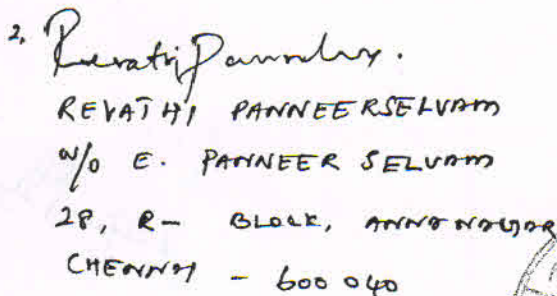 2. Revathi Panneerselvam.
REVATHI PANNEERSELVAM
W/O E. PANNEER SELVAM
28, R- BLOCK, ANNA NAGAR
CHENNAI - 600 040